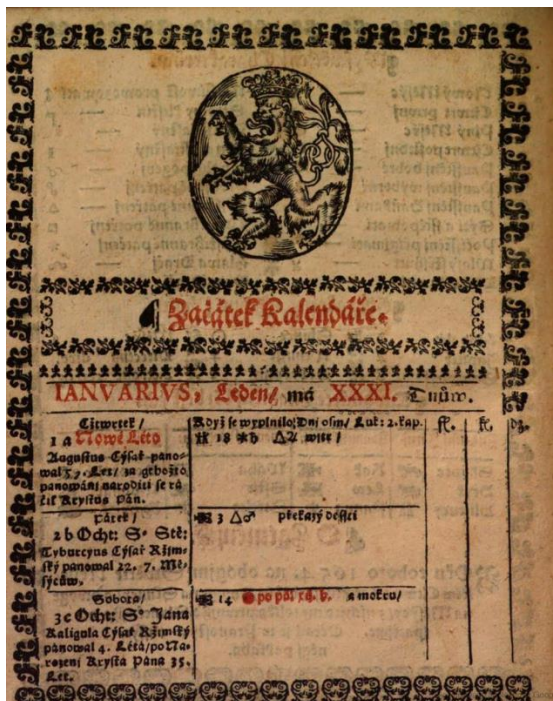 Začátek Kalendáře.
IANVARIVS, Leden/ má XXXI. Dnůw.
Cžtwrtek /
1 a Nowé Léto
Augustus Cýsař pano-
wal 57. Let/ za gehožto
panowánj naroditi se rá-
čil Krystus Pán.
Když se wyplnilo Dnj osm/ Luk: 2. kap.
18 ⚹♄ △♃ wítr /
Pátek /
2 b Ocht: S. Stě:
Tyburcyus Cýsař Ržjm-
ský panowal 22. 7. Mě-
sýcůw.
3 △♂ překazý déssť
Sobota /
3 c Ocht: S. Jana
Kaligula Cýsař Ržjmský
panowal 4. Létá/ po Na-
rozenj Krysta Pána 35.
Let.
14 po půl a mokru/